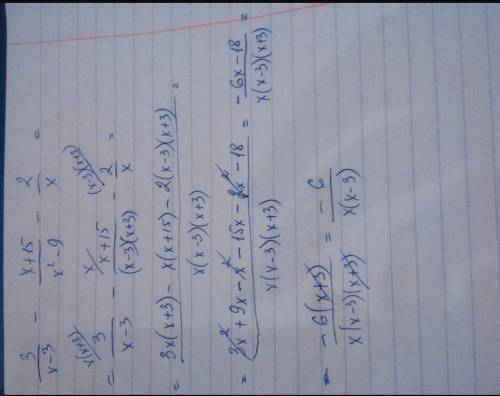 3/(x-3) - (x+15)/(x²-9) - 2/x =
= x(x+3)/ 3/(x-3) - x/ (x+15)/((x-3)(x+3)) - (x-3)(x+3)/ 2/x =
= (3x(x+3) - x(x+15) - 2(x-3)(x+3))/(x(x-3)(x+3)) =
= (3x² + 9x - x² - 15x - 2x² - 18)/(x(x-3)(x+3)) = (-6x-18)/(x(x-3)(x+3)) =
= (-6(x+3))/(x(x-3)(x+3)) = (-6)/(x(x-3))